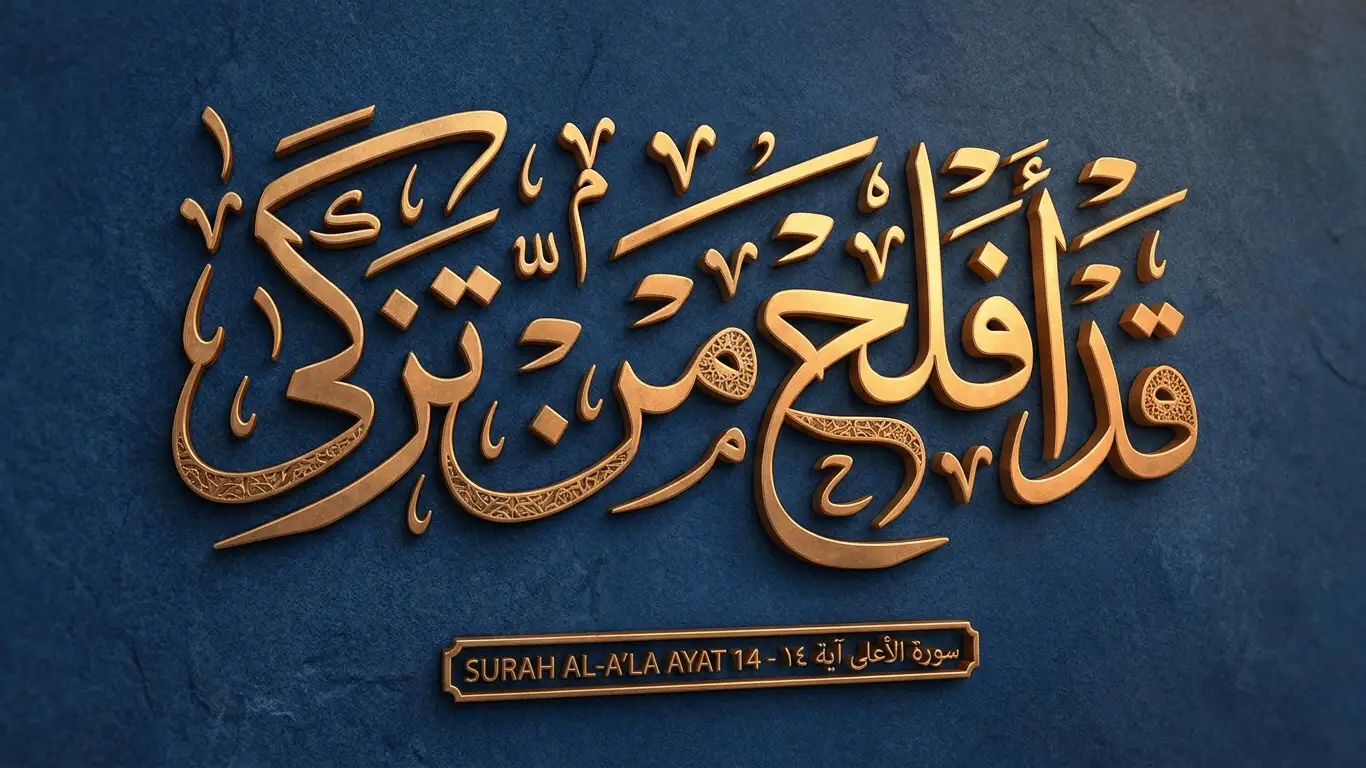 قَدْ أَفْلَحَ مَنْ تَزَكَّىٰ
SURAH AL-A'LA AYAT 14 - سورة الأعلى آية ١٤